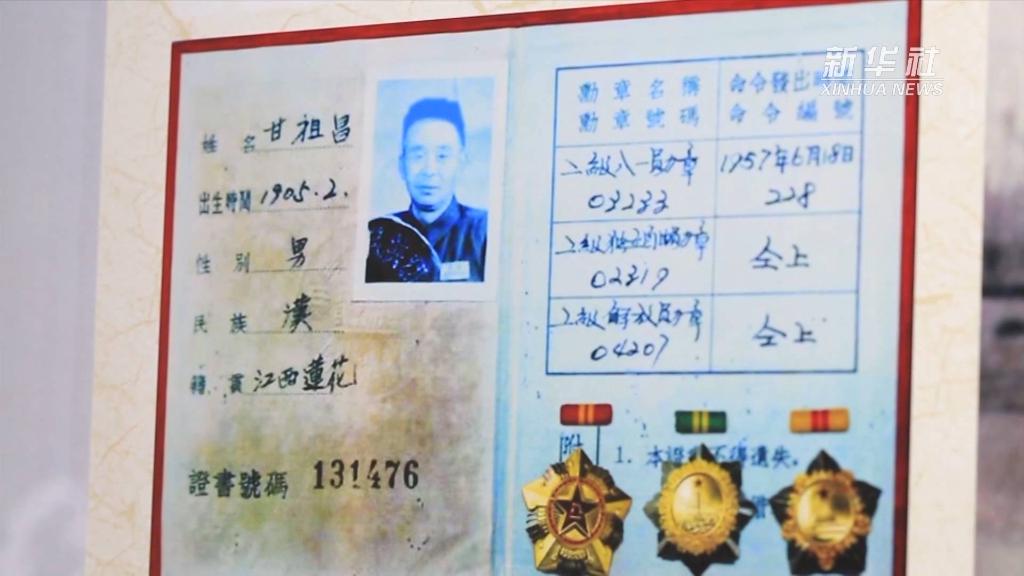 新华社
XINHUA NEWS
姓名 甘祖昌
出生時間 1905.2.
性別 男
民族 漢
籍貫 江西蓮花
證書號碼 131476
勳章名稱
勳章號碼
命令發出
命令編號
二級八一勋章
03233
1957年6月18日
228
二級独立自由勋章
02319
仝上
二級解放勋章
04207
仝上
附
1. 本證 不得遺失.